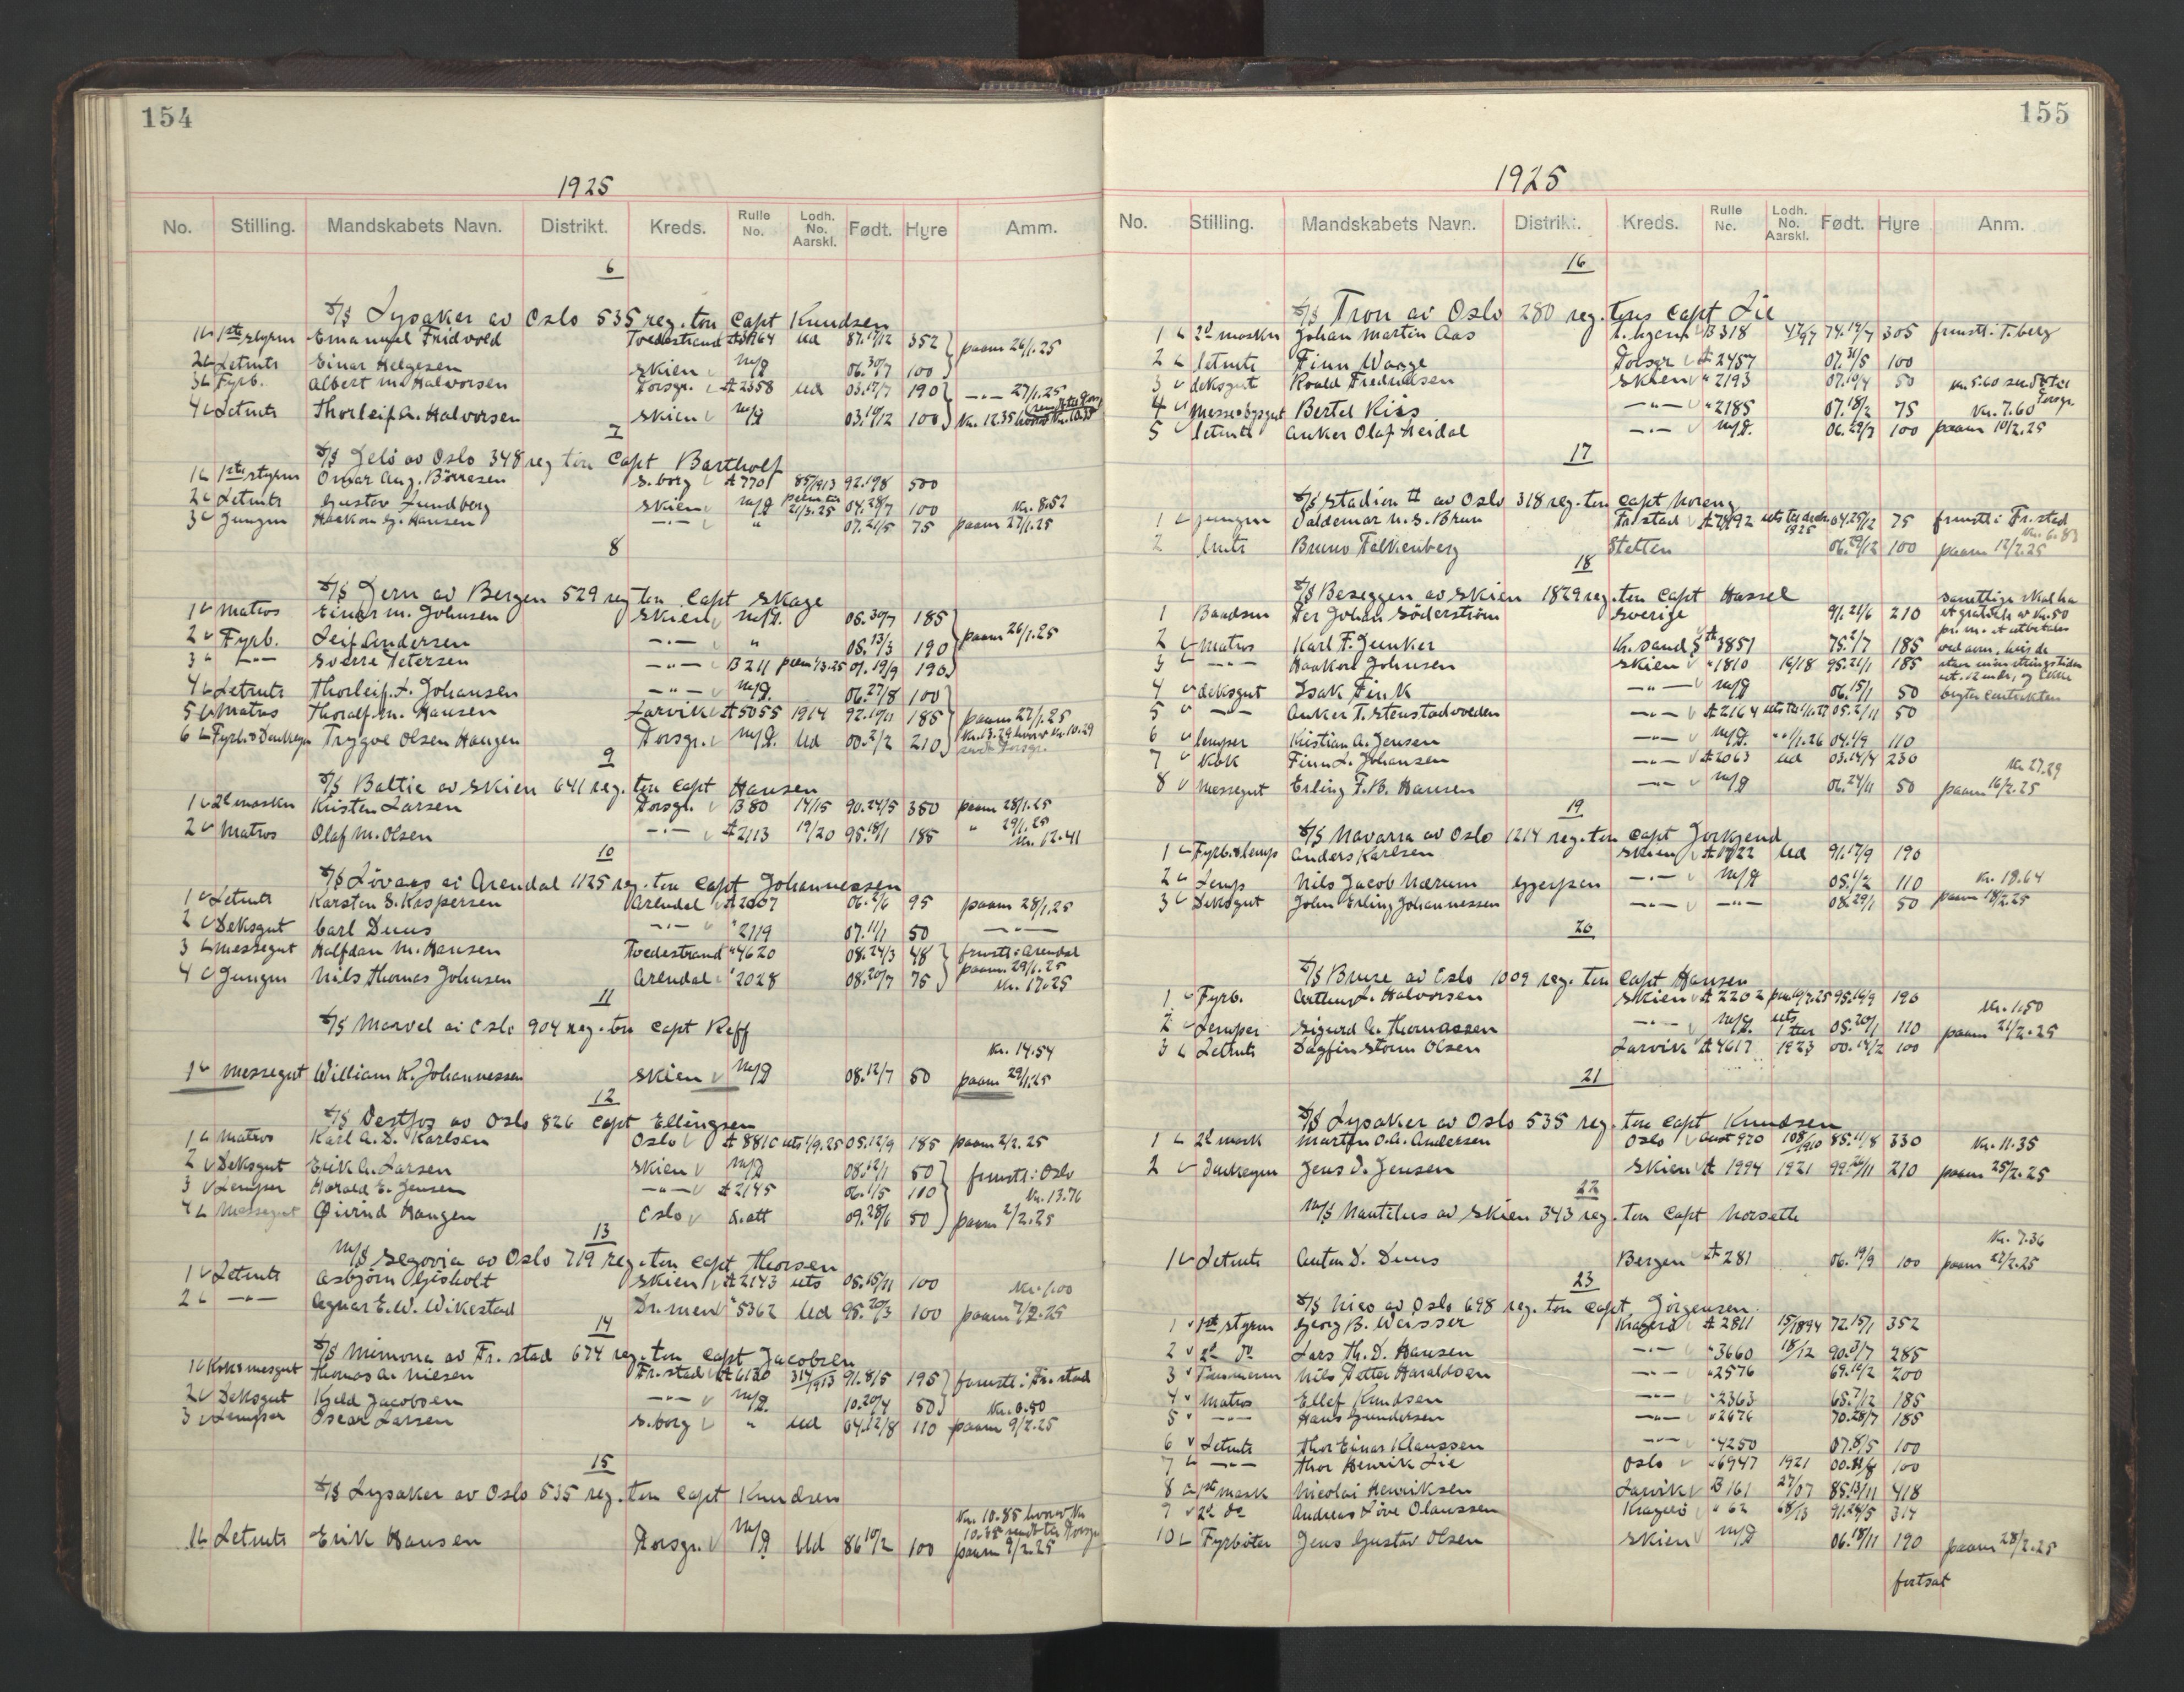 154
1925
No. Stilling. Mandskabets Navn. Distrikt. Kreds. Rulle No. Lodh. No. Aarskl. Født. Hyre Amm.
6
S/S Lysaker av Oslo 535 reg. ton Capt Knudsen
1 1ste styrm Emanuel Fridvold Tvedestrand Ud 352
2 Letmtr Einar Helgesen Skien m/P 06.30/7 100 paam 26/1.25
3 Fyrb. Albert M. Halvorsen Porsgr. A 2358 Ud 03.17/7 190 -"- 27/1.25
4 Letmtr Thorleif A. Halvorsen Skien m/P 03.10/12 100 Kr. 12.35
7
S/S Jelö av Oslo 348 reg ton Capt Bartholf
1 1ste styrm Omar Aug. Börresen S.borg A 770 85/1913 92.19/8 500
2 Letmtr Gustav Lundberg Skien m/P 21/3.25 04.28/7 100 Kr. 8.52
3 Jungm Haakon G. Hansen -"- " 07.21/5 75 paam 27/1.25
8
S/S Jern av Bergen 529 reg ton Capt Skage
1 Matros Einar M. Johnsen Skien m/P. 06.30/7 185
2 Fyrb. Leif Andersen -"- " 05.13/3 190 paam 26/1.25
3 -"- Sverre Petersen -"- B 211 07.19/9 190
4 Letmtr Thorleif L. Johansen -"- m/P. 06.27/8 100
5 Matros Thoralf M. Hansen Larvik A 5055 1914 92.19/11 185 paam 27/1.25
6 Fyrb. & Donkeym Trygve Olsen Haugen Porsgr. m/P. Ud 00.2/2 210 Kr. 13.29 hvorav Kr. 10.29
9
S/S Baltic av Skien 641 reg. ton Capt Hansen
1 2d maskn Kristen Larsen Porsgr. B 80 14/15 90.24/5 350 paam 28/1.25
2 Matros Olaf M. Olsen -"- A 2113 19/20 95.18/1 185 " 29/1.25
Kr. 12.41
10
S/S Lövaas av Arendal 1125 reg. ton Capt Johannessen
1 Letmtr Karsten S. Kaspersen Arendal A 2007 06.2/6 95 paam 28/1.25
2 Deksgut Carl Duus -"- " 2119 07.11/1 50 -"-
3 Messegut Halfdan M. Hansen Tvedestrand " 4620 08.24/3 48 frmstl i Arendal
4 Jungm Nils Thomas Johnsen Arendal " 2028 08.20/7 75 paam 29/1.25
Kr. 17.25
11
S/S Marvel av Oslo 904 reg. ton Capt Reff
Kr. 14.54
1 Messegut William R. Johannessen Skien m/P 08.12/7 50 paam 29/1.25
12
S/S Vestfos av Oslo 826 Capt Ellingsen
1 Matros Karl A. D. Karlsen Oslo A 8810 uts 1/9.25 05.12/9 185 paam 2/2.25
2 Deksgut Erik A. Larsen Skien m/P 08.12/1 50 frmstl i Oslo
3 Lemper Harald E. Jensen -"- A 2145 06.1/5 100 Kr. 13.76
4 Messegut Øivind Haugen Oslo a. att 09.28/6 50 paam 2/2.25
13
M/S Segovia av Oslo 719 reg. ton Capt Thorsen
1 Letmtr Asbjørn Gisholt Skien A 2143 uts 05.15/11 100 Kr. 1.00
2 -"- Agnar E. W. Wikestad Dr.men " 5362 Ud 95.20/3 100 paam 7/2.25
14
S/S Mimona av Fr.stad 674 reg. ton Capt Jacobsen
1 Kok & mesgut Thomas A. Nilsen Fr.stad A 6120 314/1913 91.8/5 195 frmstl i Fr.stad
2 Deksgut Kjeld Jacobsen -"- m/P. 10.20/4 50 Kr. 0.50
3 Lemper Oscar Larsen S.borg " Ud 04.12/8 110 paam 9/2.25
15
S/S Lysaker av Oslo 535 reg. ton Capt Knudsen
Kr. 10.85 hvorav Kr
10.35 sendt til Porsgr
1 Letmtr Erik Hansen Porsgr. m/P Ud 86.10/2 100 paam 9/2.25
155
1925
No. Stilling. Mandskabets Navn. Distrikt. Kreds. Rulle No. Lodh. No. Aarskl. Født. Hyre Anm.
16
S/S Tron av Oslo 280 reg. tons Capt Lie
1 2d maskn Johan Martin Aas B 318 47/97 74.19/7 305 frmstl i T.berg
2 letmtr Finn Waage Porsgr A 2457 07.31/5 100
3 deksgut Roald Fredriksen Skien " 2193 07.10/4 50 Kr. 5.60 sendt til Porsgr.
4 Messe & bysgut Bertel Riis -"- " 2185 07.18/2 75 Kr. 7.60
5 letmtr Anker Olaf Heidal -"- m/P. 06.29/3 100 paam 10/2.25
17
S/S Stadion II av Oslo 318 reg. ton Capt Noreng
1 Jungm Valdemar N. S. Brun Fr.stad 1925 04.25/12 75 frmstl i Fr.stad
Kr. 6.83
2 lmtr Bruno Falkenberg Stettin 06.29/12 100 paam 12/2.25
18
S/S Beseggen av Skien 1829 reg. ton Capt Hassel
1 Baadsm Per Johan Söderström Sverige 91.21/6 210 samtlige skal ha
et gratiale av Kr. 50
2 Matros Karl F. Junker Kr.sand S A 3851 75.2/7 185
3 -"- Haakon Johnsen Skien " 1810 16/18 95.21/1 185
4 deksgut Isak Fink -"- m/P 06.15/1 50
5 -"- Anker T. Stenstadvolden -"- A 2164 05.2/11 50
6 lemper Kristian A. Jensen -"- m/P. 1/1.26 04.1/9 110
7 Kok Finn L. Johansen -"- A 2063 Ud 03.14/4 230 Kr. 27.29
8 Messegut Erling F. B. Hansen -"- m/P 06.24/11 50 paam 16/2.25
19
S/S Navarra av Oslo 1214 reg. ton Capt Jorkjend
1 Fyrb. & lemp Anders Karlsen Skien A 1722 Ud 91.17/9 190
2 Lemp Nils Jacob Nærum -"- m/P 05.1/2 110 Kr. 18.64
3 Deksgut John Erling Johannessen -"- -"- 08.29/1 50 paam 18/2.25
20
S/S Bruse av Oslo 1009 reg. ton Capt Hansen
1 Fyrb. Arthur L. Halvorsen Skien A 2202 95.19/9 190 Kr. 1.50
2 Lemper Sigurd A. Thomassen -"- m/P. uts 05.20/1 110 paam 21/2.25
3 Letmtr Dagfin Storm Olsen Larvik A 4617 1923 00.14/2 100
21
S/S Lysaker av Oslo 535 reg. ton Capt Knudsen
1 2d mask Martin O. A. Andersen Oslo 970 108/1910 85.11/8 330 Kr. 11.35
2 Donkeym Jens O. Jensen Skien A 1994 1921 99.26/11 210 paam 25/2.25
22
M/S Nautilus av Skien 343 reg. ton Capt Norseth
Kr. 7.36
1 Letmtr Anton D. Duus Bergen A 281 06.19/9 100 paam 27/2.25
23
S/S Nico av Oslo 698 reg. ton Capt Jörgensen
1 1st styrm Georg B. Weisser Kragerö A 2811 15/1894 72.15/1 352
2 2d do Lars Th. D. Hansen -"- " 3660 18/12 90.3/7 285
3 Tömmerm Nils Petter Haraldsen -"- " 2576 69.10/2 200
4 Matros Ellef Knudsen -"- " 2363 65.7/12 185
5 -"- Hans Gundersen -"- " 2676 70.28/7 185
6 Letmtr Thor Einar Klaussen -"- " 4250 07.8/5 100
7 -"- Thor Henrik Lie Oslo " 6947 1921 100
8 1st mask Nicolai Henriksen Larvik B 161 27/07 85.13/11 418
9 2d do Andreas Löve Olaussen Kragerö " 62 68/13 91.24/5 314
10 Fyrböter Jens Gustav Olsen Skien m/P 06.18/11 190 paam 28/2.25
fortsat